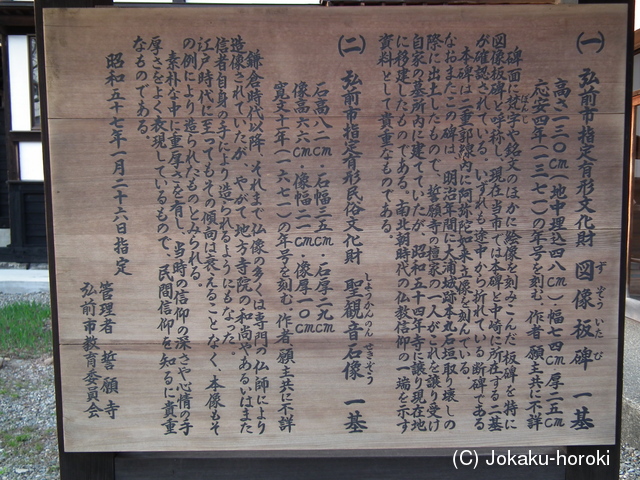 (一) 弘前市指定有形文化財 図像板碑 一基
ずぞういたび
高さ一三〇cm(地中埋込四八)幅七四cm 厚二五cm
応安四年(一三七一)の年号を刻む、作者・願主共に不詳
碑面に梵字や銘文のほかに絵像を刻みこんだ板碑を特に
ぼんじ
図像板碑と呼称し、現在当市では本碑と中崎に所在する二基
が確認されている。いずれも途中から折れている断碑である
本碑は二重郭線内に阿弥陀如来立像を刻んている
なおまたこの碑は、明治年間に大浦城跡本丸石垣取り壊しの
際に出土したもので、誓願寺の檀家の一人がこれを譲り受け
自家の墓所内に建てていたが、昭和五十四年寺に譲り現在地
に移建したものである。南北朝時代の仏教信仰の一端を示す
資料として貴重なものである。
(二) 弘前市指定有形民俗文化財 聖観音石像 一基
しょうかんのん せきぞう
石高八一cm・石幅三五cm・石厚二九cm
像高六六cm・像幅二一cm・像厚一〇cm
寛文十年(一六七一)の年号を刻む 作者・願主共に不詳
鎌倉時代以降、それまで仏像の多くは専門の仏師により
造像されていたが、やがて地方寺院の和尚やあるいはまた
信者自身の手により造られるようにもなった。
江戸時代に至ってもその傾向は衰えることなく、本像もそ
の例により造られたものとみられる。
素朴な中に重厚さを有し、当時の信仰の深さや心情の手
厚さをよく表現しているもので、民間信仰を知るに貴重
なものである。
昭和五十七年一月二十六日指定
管理者 誓願寺
弘前市教育委員会
(C) Jokaku-horoki